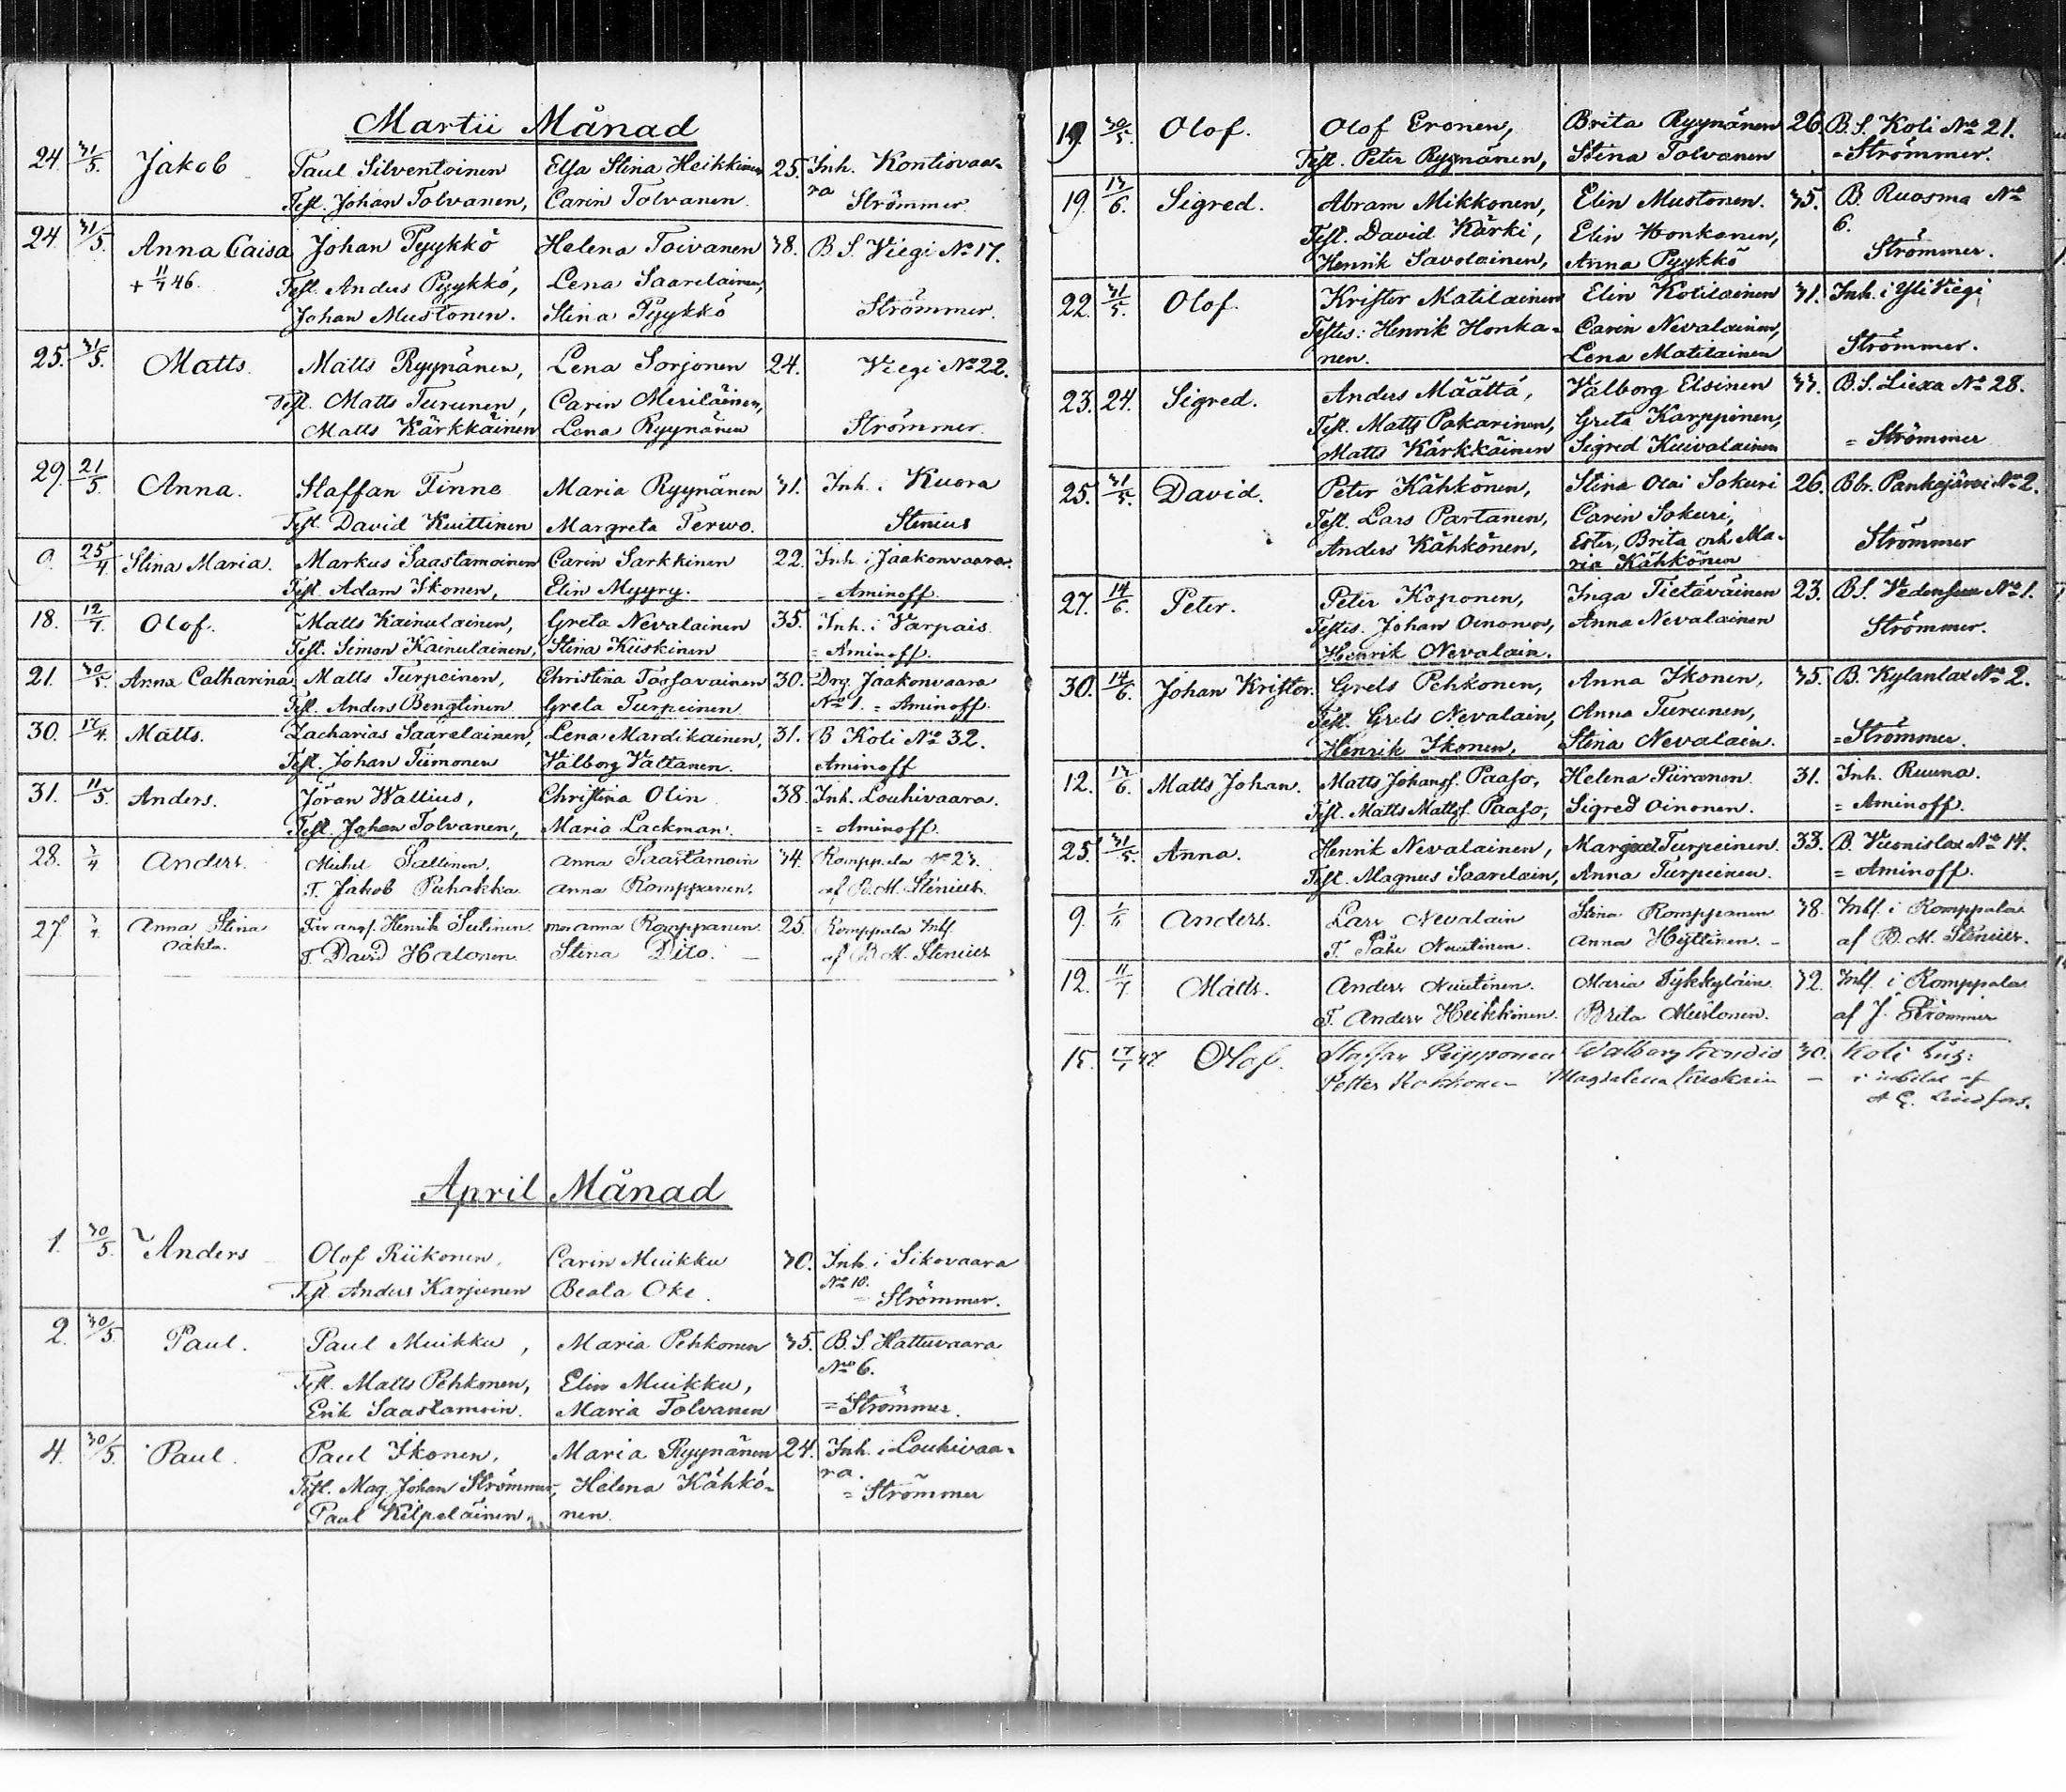 Martii Månad
24. 31/5. Jakob Paul Silventoinen Elsa Stina Heikkinen 25. Inh. Kontiovaa-
Test. Johan Tolvanen, Carin Tolvanen. ra Strömmer.
24. 31/5. Anna Caisa Johan Pyykkö Helena Toivanen 38. B.S. Viegi No 17.
+ 11/7 46. Test. Anders Pyykkö, Lena Saarelainen,
Johan Mustonen. Stina Pyykkö Strömmer.
25. 31/5. Matts. Matts Ryynänen, Lena Sorjonen 24. Viegi No 22.
Test. Matts Turunen, Carin Meriläinen,
Matts Kärkkäinen Lena Ryynänen Strömmer.
29. 21/5. Anna. Staffan Tinne Maria Ryynänen 31. Inh. i Kuora
Test. David Kuittinen Margreta Terwo. Stenius
9. 25/4. Stina Maria. Markus Saastamoinen Carin Sarkkinen 22. Inh. i Jaakonvaara.
Test. Adam Ikonen, Elin Myyry. = Aminoff.
18. 12/7. Olof. Matts Kainulainen, Greta Nevalainen 35. Inh. i Varpais.
Test. Simon Kainulainen, Stina Kiiskinen = Aminoff.
21. 30/5. Anna Catharina Matts Turpeinen, Christina Tossavainen 30. Drg. Jaakonvaara
Test. Anders Bengtinen Greta Turpeinen No 1. = Aminoff.
30. 12/4. Matts. Zacharias Saarelainen, Lena Mardikainen, 31. B Koli No 32.
Test. Johan Tiimonen Valborg Valtanen. Aminoff
31. 11/5. Anders. Jöran Wallius, Christina Olin 38. Inh. Louhivaara.
Test. Johan Tolvanen, Maria Lackman. = Aminoff.
28. 3/4 Anders. Michel Sallinen, Anna Saastamoin 34. Romppala No 23.
T. Jakob Puhakka Anna Romppanen. af B. M. Stenius.
27. Anna Stina Henrik Sulinen. mor anna Romppanen. 25. Romppala Inh.
oäkta. T. David Halonen. Stina Dito. — af B. M. Stenius
April Månad
1. 30/5. Anders Olof Riikonen, Carin Muikku 30. Inh. i Sikovaara
Test. Anders Karjunen Beata Oke. No 10. = Strömmer.
2. 30/5. Paul. Paul Muikku, Maria Pehkonen 35. B.S. Hattuvaara
Test. Matts Pehkonen, Elin Muikku, No 6.
Erik Saastamoin. Maria Tolvanen = Strömmer.
4. 30/5. Paul. Paul Ikonen, Maria Ryynänen 24. Inh. i Louhivaa-
Test. Mag. Johan Strömmer, Helena Kähkö- ra.
Paul Kilpeläinen, nen. = Strömmer
19. 30/5. Olof. Olof Eronen, Brita Ryynänen 26. B.S. Koli No 21.
Test. Peter Ryynänen, Stina Tolvanen = Strömmer.
19. 13/6. Sigred. Abram Mikkonen, Elin Mustonen. 35. B. Ruosma No
Test. David Kärki, Elin Honkanen, 6.
Henrik Savolainen, Anna Pyykkö Strömmer.
22. 31/5. Olof. Krister Matilainen Elin Kotilainen 31. Inh. i Yli Viegi
Testis: Henrik Honka- Carin Nevalainen,
nen. Lena Matilainen Strömmer.
23. 24. Sigred. Anders Määttä, Valborg Elsinen 33. B.S. Liexa No 28.
Test. Matts Pakarinen, Greta Karppinen,
Matts Kärkkäinen Sigred Kuivalainen = Strömmer
25. 31/5. David. Peter Kähkönen, Stina Olai Sokuri 26. Bbr. Pankajärvi No 2.
Test. Lars Partanen, Carin Sokuri,
Anders Kähkönen, Ester, Brita och Ma- Strömmer
ria Kähkönen
27. 14/6. Peter. Peter Koponen, Inga Tietäväinen 23. B.S. Vedensuu No 1.
Testis. Johan Oinonen, Anna Nevalainen Strömmer.
Henrik Nevalain.
30. 14/6. Johan Krister. Grels Pehkonen, Anna Ikonen, 35. B. Kylanlax No 2.
Test. Grels Nevalain, Anna Turunen,
Henrik Ikonen, Stina Nevalain. = Strömmer.
12. 13/6. Matts Johan. Matts Johanss. Paaso, Helena Piiranen 31. Inh. Ruuna.
Test. Matts Mattss. Paaso, Sigred Oinonen. = Aminoff.
25. 31/5. Anna. Henrik Nevalainen, Margret Turpeinen. 33. B. Vuonislax No 14.
Test. Magnus Saarelain, Anna Turpeinen. = Aminoff.
9. Anders. Lars Nevalain Stina Romppanen 38. Inh. i Romppala
T. Påhl Nuutinen. Anna Hyttinen. – af B. M. Stenius.
12. 11/7. Matts. Anders Nuutinen. Maria Tykkyläin 32. Inh. i Romppala
T. Anders Heikkinen. Brita Mustonen. af J. Strömmer
15. 17/1 47. Olof. Staffan Piipponen Walborg 30. Koli
Petter Kokkonen Magdalena –